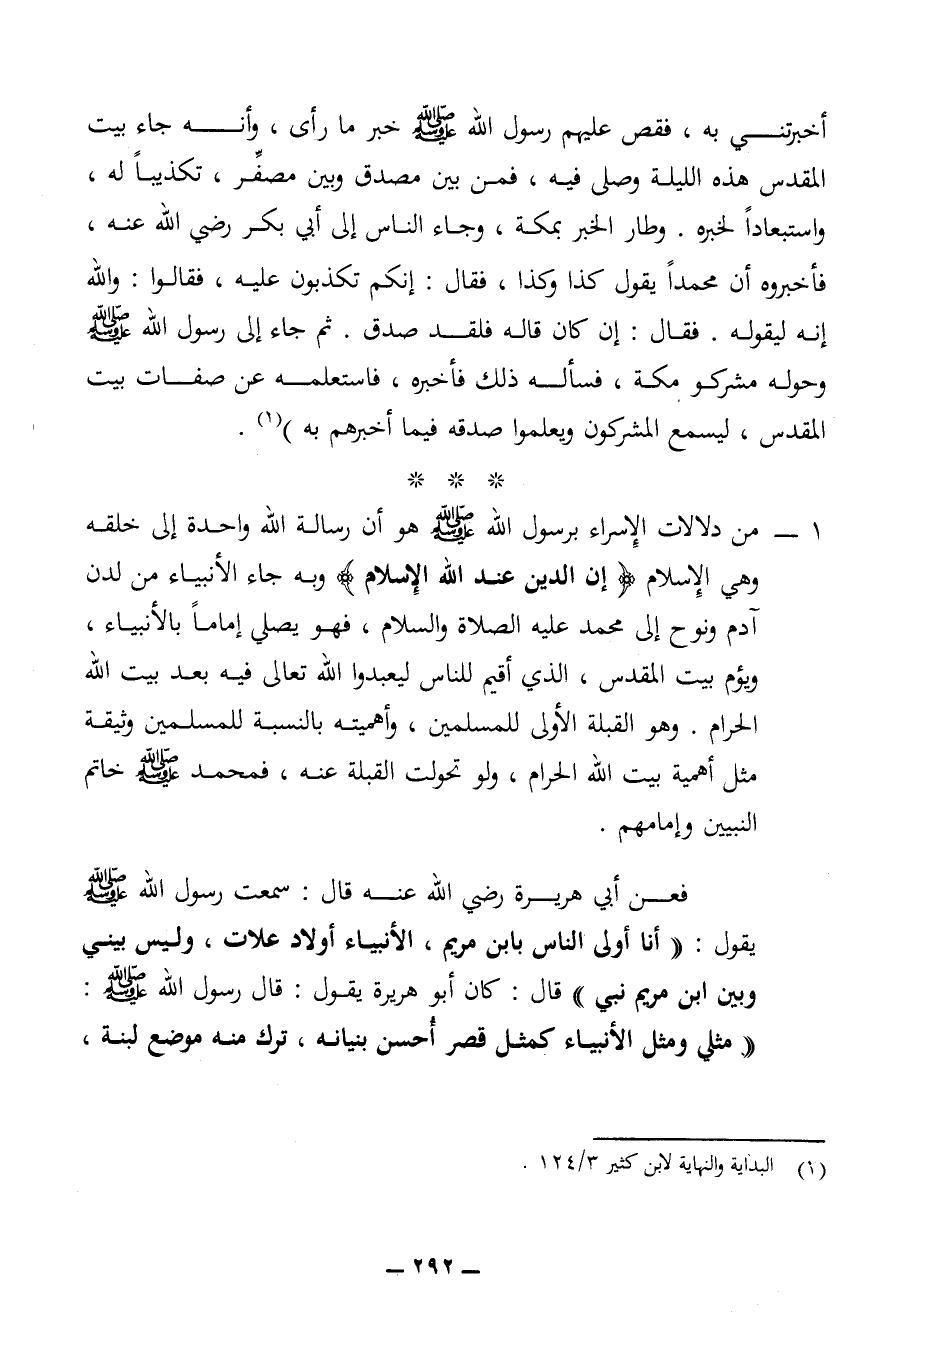 أخبرتنــــي به ، فقص عليهم رسول الله ﷺ خبر ما رأى ، وأنــــه جاء بيت
المقدس هذه الليلة وصلى فيه ، فمن بين مصدق وبين مصفِّر ، تكذيباً له ،
واستبعاداً لخبره . وطار الخبر بمكة ، وجاء الناس إلى أبي بكر رضي الله عنه ،
فأخبروه أن محمداً يقول كذا وكذا ، فقال : إنكم تكذبون عليه ، فقالوا : والله
إنه ليقوله . فقال : إن كان قاله فلقد صدق . ثم جاء إلى رسول الله ﷺ
وحوله مشركو مكة ، فسأله ذلك فأخبره ، فاستعلمه عن صفات بيت
المقدس ، ليسمع المشركون ويعلموا صدقه فيما أخبرهم به )(١) .
* * *
١ ـ من دلالات الإسراء برسول الله ﷺ هو أن رسالة الله واحدة إلى خلقه
وهي الإسلام ﴿ إن الدين عند الله الإسلام ﴾ وبه جاء الأنبياء من لدن
آدم ونوح إلى محمد عليه الصلاة والسلام ، فهو يصلي إماماً بالأنبياء ،
ويؤم بيت المقدس ، الذي أقيم للناس ليعبدوا الله تعالى فيه بعد بيت الله
الحرام . وهو القبلة الأولى للمسلمين ، وأهميته بالنسبة للمسلمين وثيقة
مثل أهمية بيت الله الحرام ، ولو تحولت القبلة عنه ، فمحمد ﷺ خاتم
النبيين وإمامهم .
فعــن أبي هريــرة رضي الله عنــه قال : سمعت رسول الله ﷺ
يقول : (( أنا أولى الناس بابن مريم ، الأنبياء أولاد علات ، وليس بيني
وبين ابن مريم نبي )) قال : كان أبو هريرة يقول : قال رسول الله ﷺ :
(( مثلي ومثل الأنبياء كمثل قصر أُحسن بنيانه ، ترك منه موضع لبنة ،
(١) البداية والنهاية لابن كثير ١٢٤/٣ .
ـ ٢٩٢ ـ